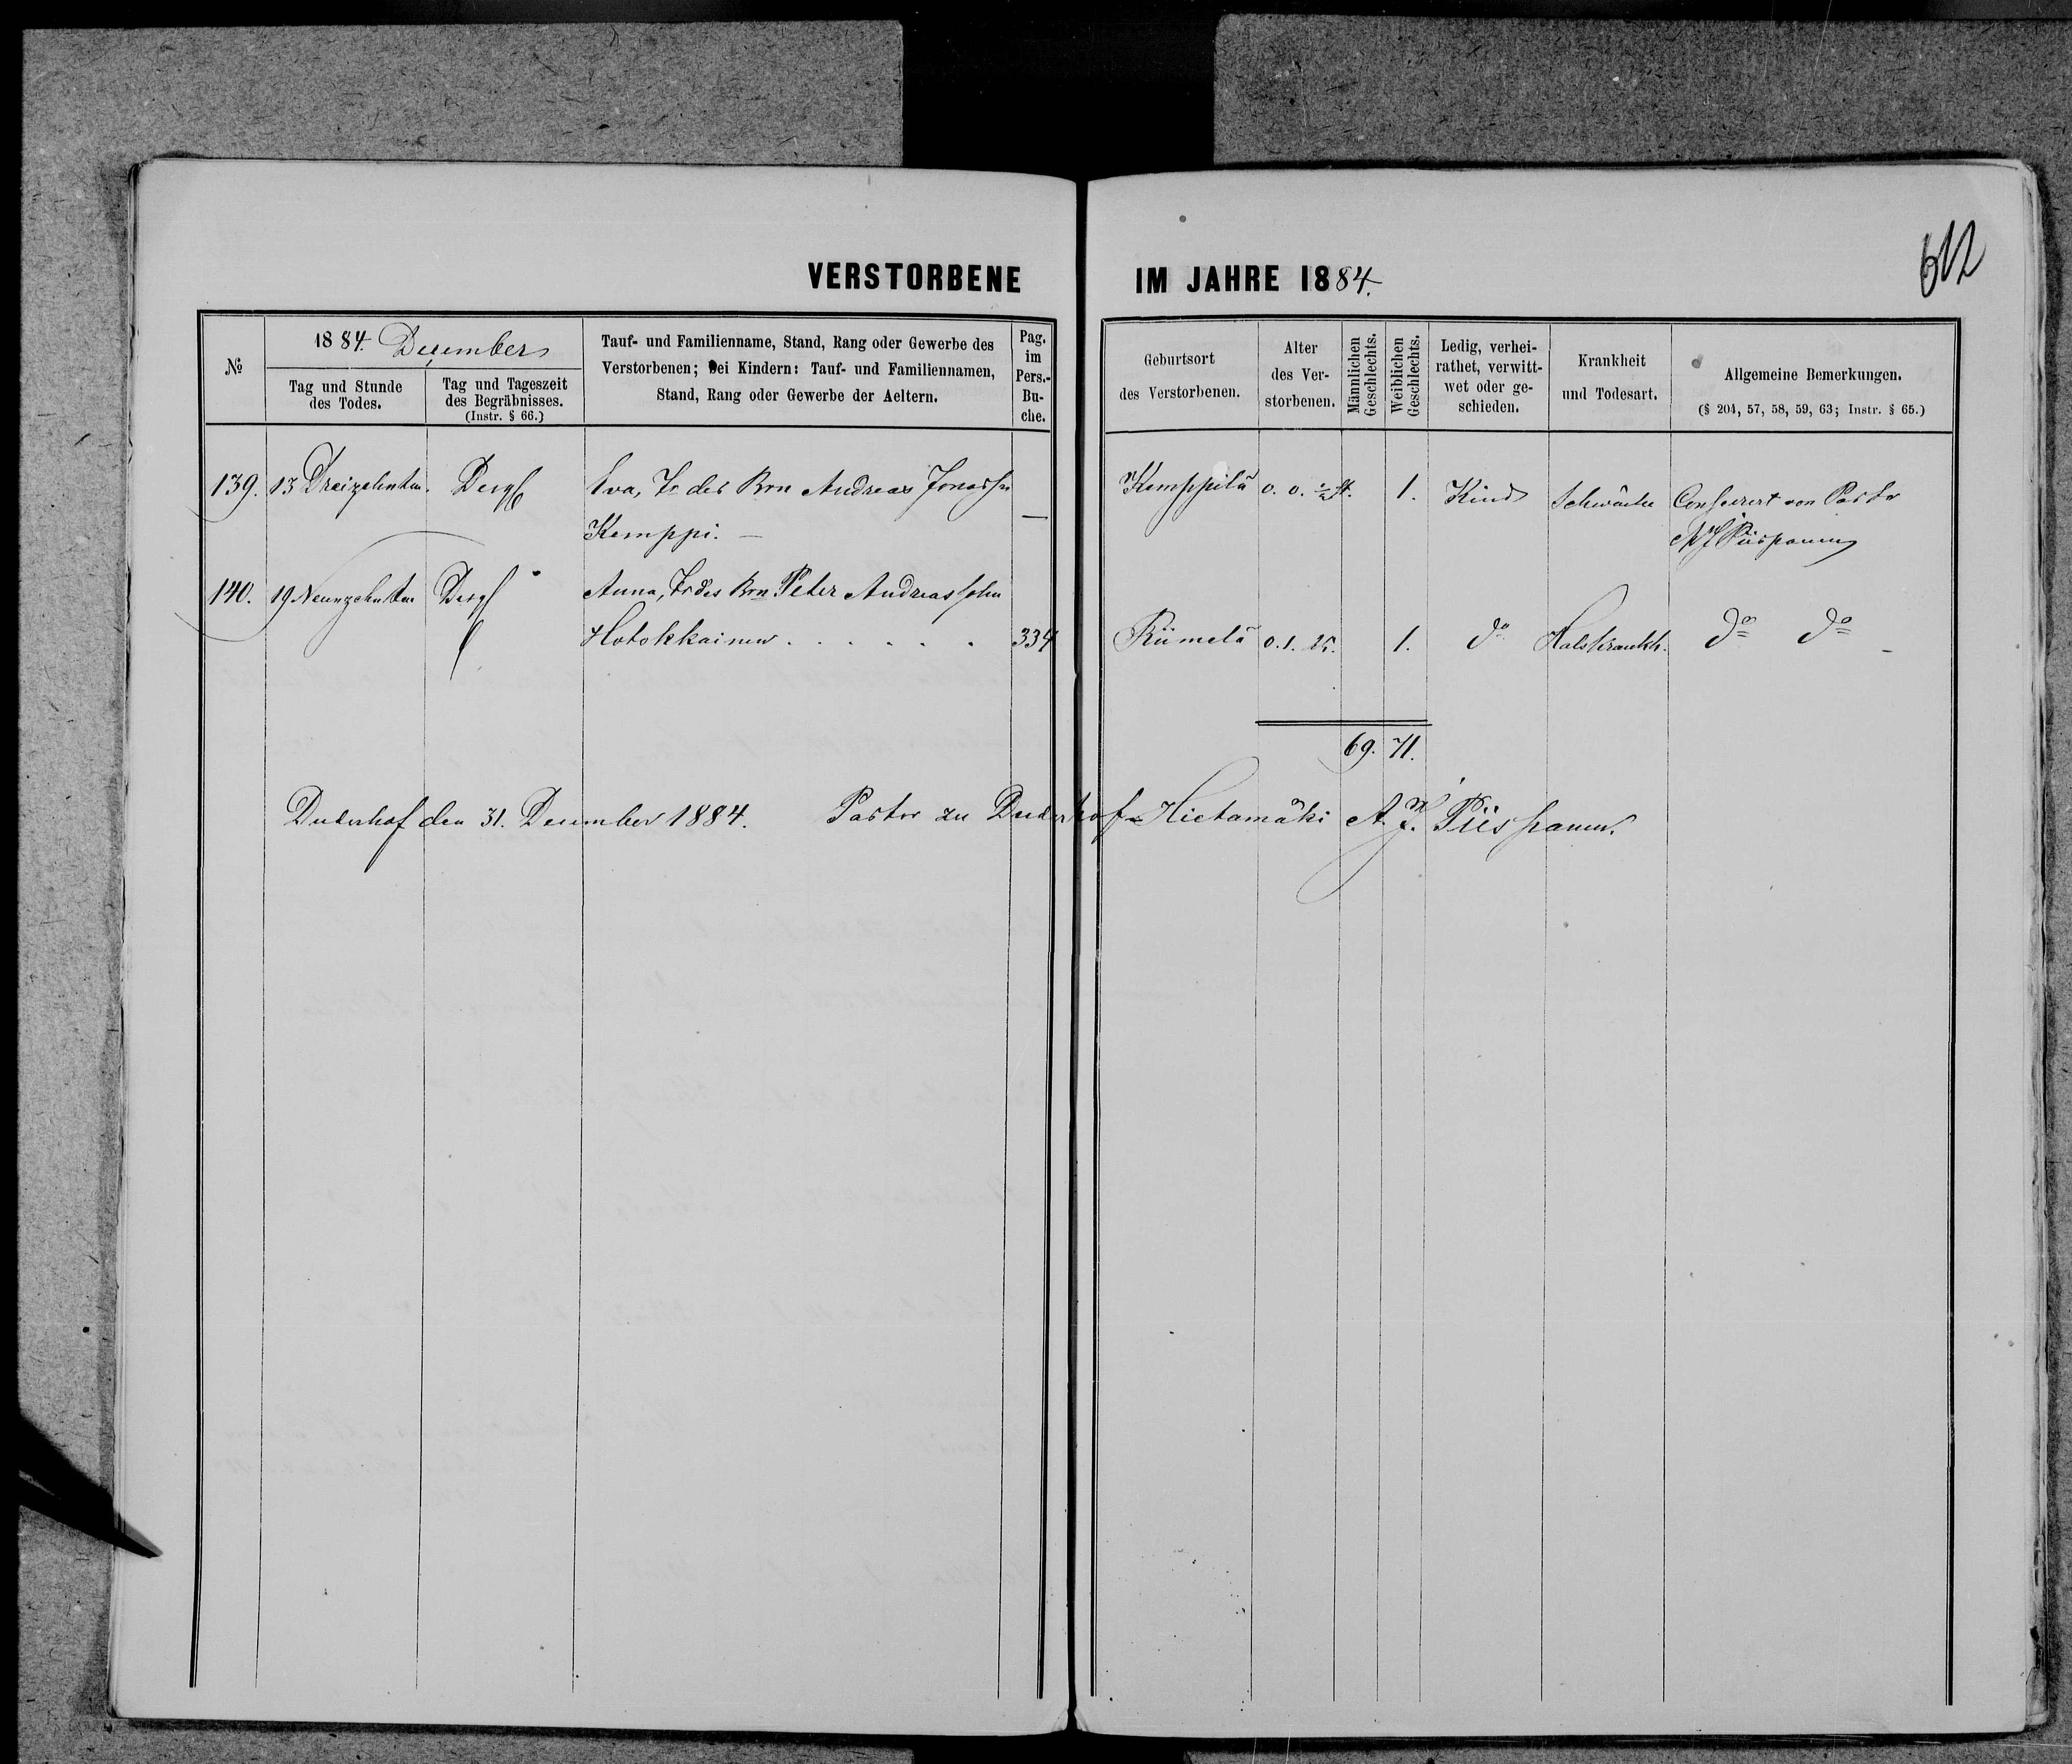 VERSTORBENE IM JAHRE 1884.
612
№
1884. December
Tag und Stunde des Todes.
Tag und Tageszeit des Begräbnisses. (Instr. § 66.)
Tauf- und Familienname, Stand, Rang oder Gewerbe des Verstorbenen; bei Kindern: Tauf- und Familiennamen, Stand, Rang oder Gewerbe der Aeltern.
Pag. im Pers.-Bu-che.
Geburtsort des Verstorbenen.
Alter des Ver-storbenen.
Männlichen Geschlechts.
Weiblichen Geschlechts.
Ledig, verhei-rathet, verwitt-wet oder ge-schieden.
Krankheit und Todesart.
Allgemeine Bemerkungen. (§ 204, 57, 58, 59, 63; Instr. § 65.)
139. 13 Dreizehnten. Desgl Eva, Tr des Brn Andreas Jonassn — Kemppilä 0. 0. ½ St. 1. Kind Schwäche Conseirert von Pastor
Kemppi. — A. J. Piispanen
140. 19 Neunzehnten Desgl Anna, Tr des Brn Peter Andreassohn
Hotokkainen . . . . . . 334 Riimelä 0. 1. 25. 1. do Halskrankh. do do —
69. 71.
Duderhof den 31. December 1884. Pastor zu Duderhof-Hietamäki A. J. Piispanen.